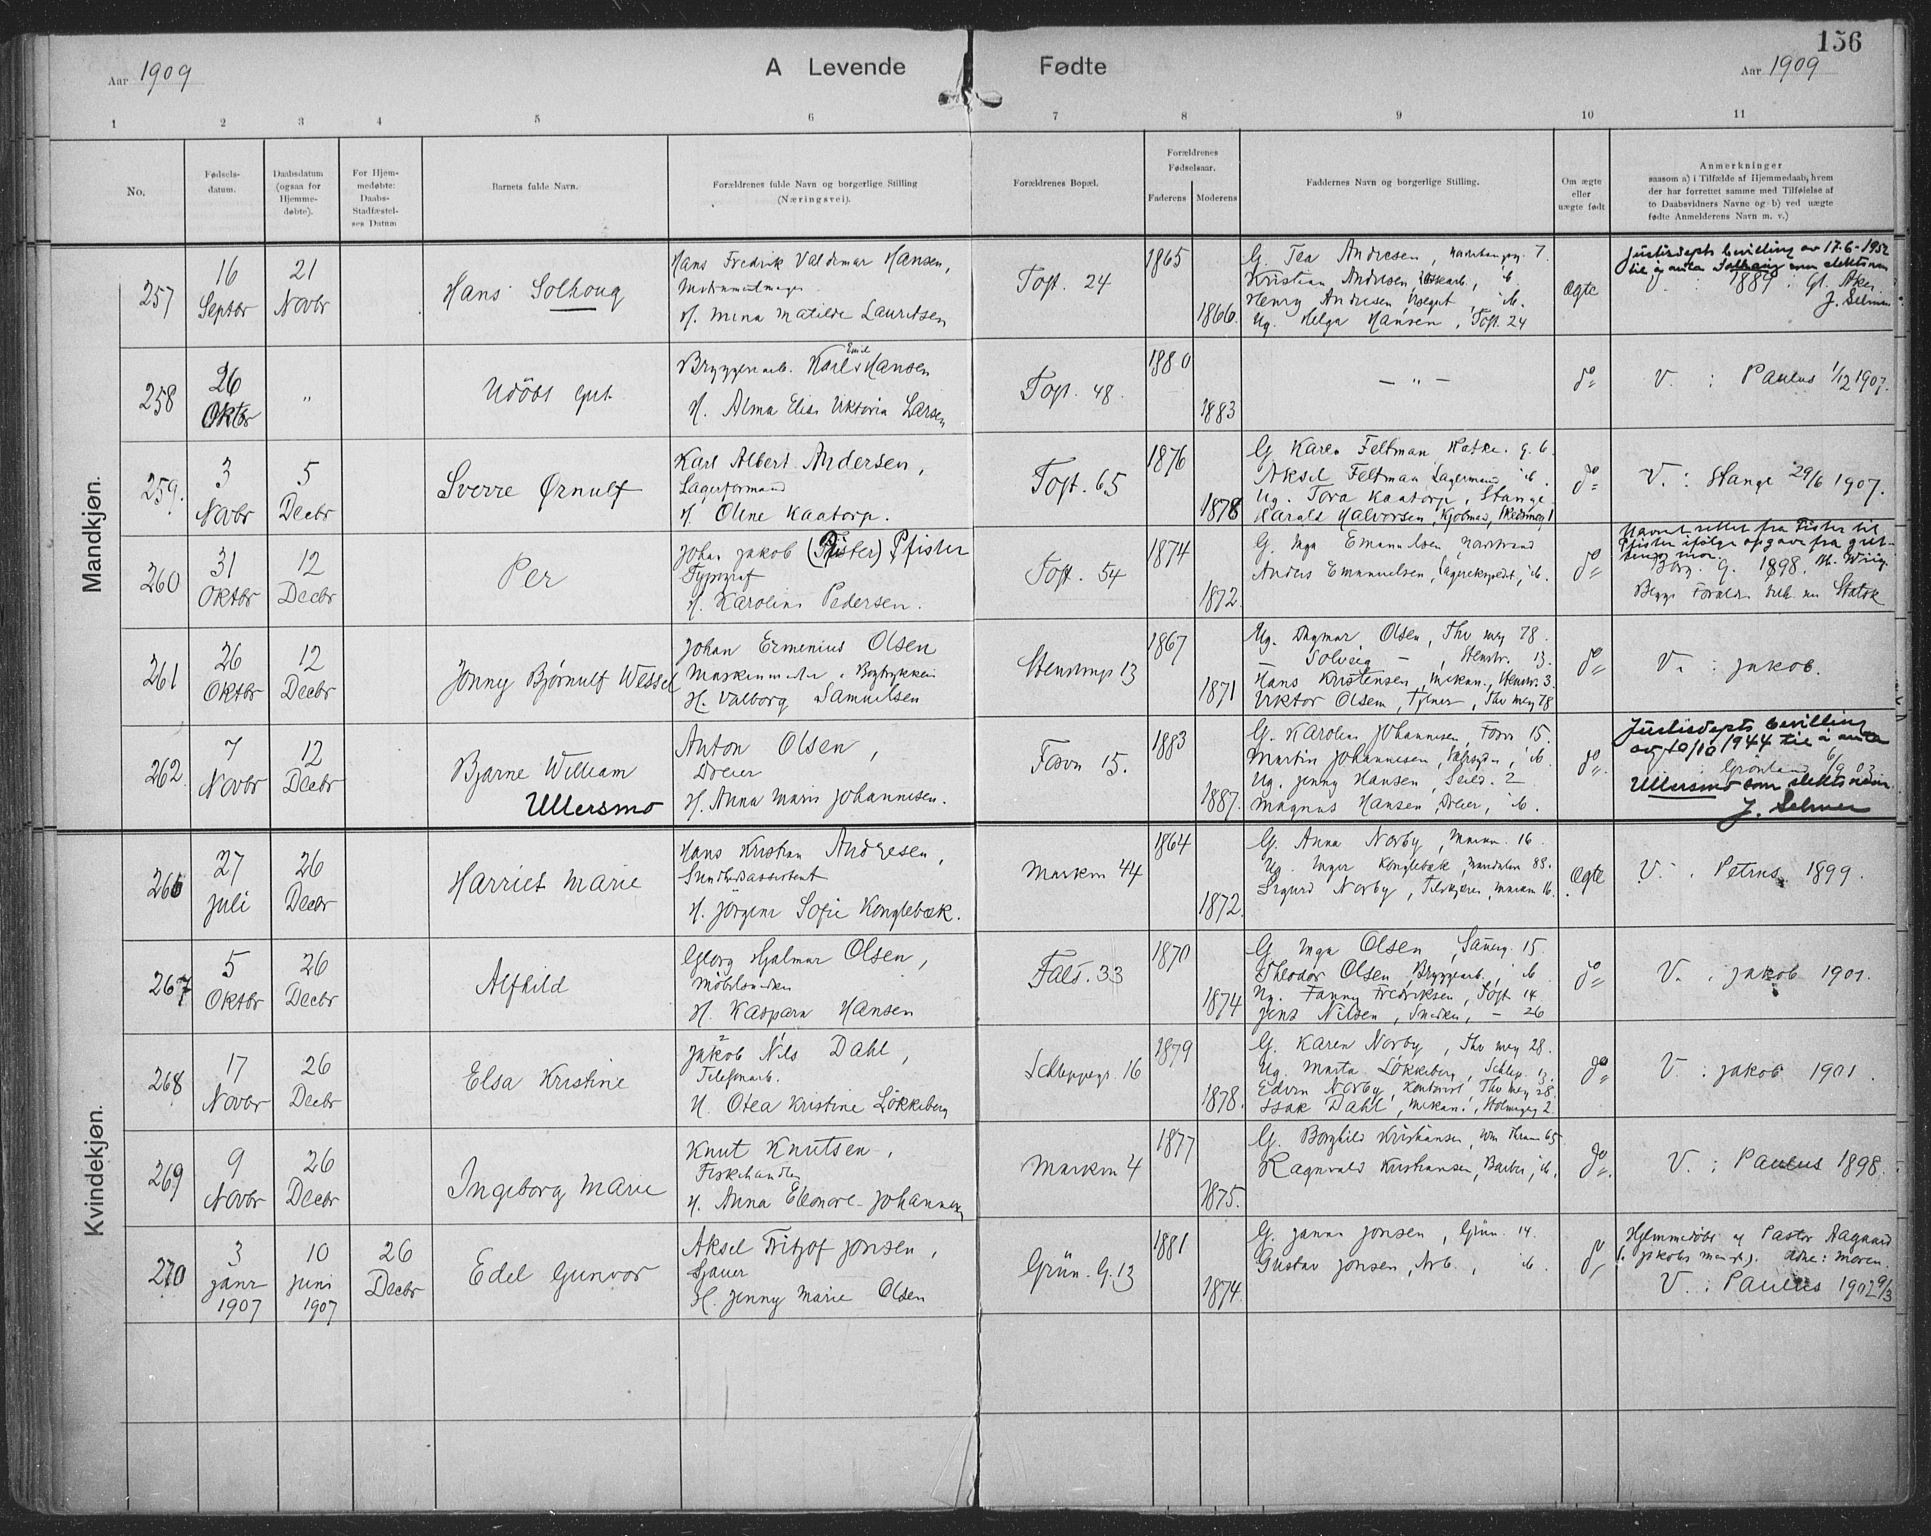 156
Aar 1909
A Levende Fødte
Aar 1909
1 2 3 4 5 6 7 8 9 10 11
No.
Fødsels-
datum.
Daabsdatum
(ogsaa for
Hjemme-
døbte).
For Hjem-
medøbte:
Daabs-
Stadfæstel-
ses Datum
Barnets fulde Navn.
Forældrenes fulde Navn og borgerlige Stilling
(Næringsvei).
Forældrenes Bopæl.
Forældrenes
Fødselsaar.
Faderens Moderens
Faddernes Navn og borgerlige Stilling.
Om ægte
eller
uægte født
Anmerkninger
saasom a) i Tilfælde af Hjemmedaab, hvem
der har forrettet samme med Tilføielse af
to Daabsvidners Navne og b) ved uægte
fødte Anmelderens Navn m. v.)
Mandkjøn.
257
16
Septbr
21
Novbr
Hans Solhoug
Hans Fredrik Valdemar Hansen,
H. Mina Matilde Lauritsen
Toft. 24
1865
1866.
G. Tea Andresen, 7.
Kristian Andresen, ib
Henry Andresen ib.
Ug. Helga Hansen, Toft. 24
Ægte
Justisdepts bevilling av 17-6-1952
til å anta Solhaug som slektsnavn
1889. Gl. Aker.
J. Selmer
258
26
Oktbr
"
Udøbt Gut
Bryggeriarb. Karl Emil Hansen
H. Alma Elise Viktoria Larsen
Toft. 48.
1880
1883
— " —
do
V. : Paulus 1/12 1907.
259.
3
Novbr
5
Decbr
Sverre Ørnulf
Karl Albert Andersen,
Lagerformand
H. Oline Kaatorp.
Toft. 65
1876
1878
G. Karen Feltman g. 6
Aksel Feltman Lagermand ib.
Ug. Tora Kaatorp, Stange
Harald Halvorsen, Kjøbmd,
do
V. : Stange 29/6 1907.
260
31
Oktbr
12
Decbr
Per
Johan Jakob (Fister) Pfister
Typograf
H. Karoline Pedersen.
Toft. 54
1874
1872.
G. Inga Emanuelsen,
Anders Emanuelsen, Lagerekspedt, ib.
do
Navnet rettet fra Fister til
Pfister ifølge opgave fra
mor.
Borg. g. 1898. M. Wiig.
Begge Forældre Statsk
261
26
Oktbr
12
Decbr
Jonny Bjørnulf Wessel
Johan Ermenius Olsen
Maskinmester i Bogtrykkeri
H. Valborg Samuelsen
Stenstrup 13
1867
1871
Ug. Dagmar Olsen, Thv mey 78.
— Solveig — , Stenstr. 13.
Hans Kristensen, Mekan., Stenstr. 3
Viktor Olsen, Thv mey 78
do
V. : Jakob.
262
7
Novbr
12
Decbr
Bjarne William
Ullersmo
Anton Olsen,
Dreier
H. Anna Marie Johannesen.
Fossv 15.
1883
1887.
G. Karoline Johannesen Fossv 15.
Martin Johannesen, ib.
Ug. Jenny Hansen, Seild. 2
Magnus Hansen, Dreier, ib.
do
Justisdepts bevilling
av 10/10 1944 til å anta
Grønland 6/9 03
Ullersmo som slektsnavn
J. Selmer
Kvindekjøn.
266
27
Juli
26
Decbr
Harriet Marie
Hans Kristian Andresen,
Sundhedsassistent
H. Jørgine Sofie Konglebæk.
Markvn 44
1864
1872.
G. Anna Norby, Markvn. 16.
Ug. Inger Konglebæk, 88.
Sigurd Norby, Markvn 16.
Ægte
V. : Petrus 1899.
267
5
Oktbr
26
Decbr
Alfhild
Georg Hjalmar Olsen,
Møbelsnedker
H. Kaspara Hansen
Fals. 33
1870
1874
G. Inga Olsen, 15.
Theodor Olsen, Bryggearb., ib
Ug. Fanny Fredriksen, Toft 14
Jens Nilsen, Snedker, — 26
do
V. : Jakob 1901.
268
17
Novbr
26
Decbr
Elsa Kristine
Jakob Nils Dahl,
Telefonarb.
H. Otea Kristine Løkkeberg
Schleppegr. 16
1879
1878.
G. Karen Norby, Thv mey 28.
Ug. Marta Løkkeberg, Schlep. 13.
Edvin Norby, Kontorist, Thv mey 28.
Isak Dahl, Mekan., 2.
do
V. : Jakob 1901.
269
9
Novbr
26
Decbr
Ingeborg Marie
Knut Knutsen,
Fiskehandler
H. Anna Eleonore Johannesen
Markvn 4
1877
1875.
G. Borghild Kristiansen, 65.
Ragnvald Kristiansen, Barber, ib.
do
V. : Paulus 1898.
270
3
Janr
1907
10
Juni
1907
26
Decbr
Edel Gunvor
Aksel Fritjof Jonsen,
Sjauer
H. Jenny Marie Olsen
Grün. G. 13
1881
1874.
G. Janna Jonsen, Grün. 14.
Gustav Jonsen, Arb., ib.
do
Hjemmedøbt af Pastor Aagaard
(i Jakobs men.). Moren.
V. : Paulus 1902 9/3